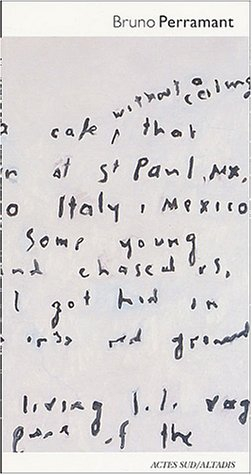 Bruno Perramant
without a
ceiling
cafe, that
at St Paul, MX,
Italy, Mexico
some young
and chased us,
I got hid in
red ground
living
of the
ACTES SUD/ALTADIS